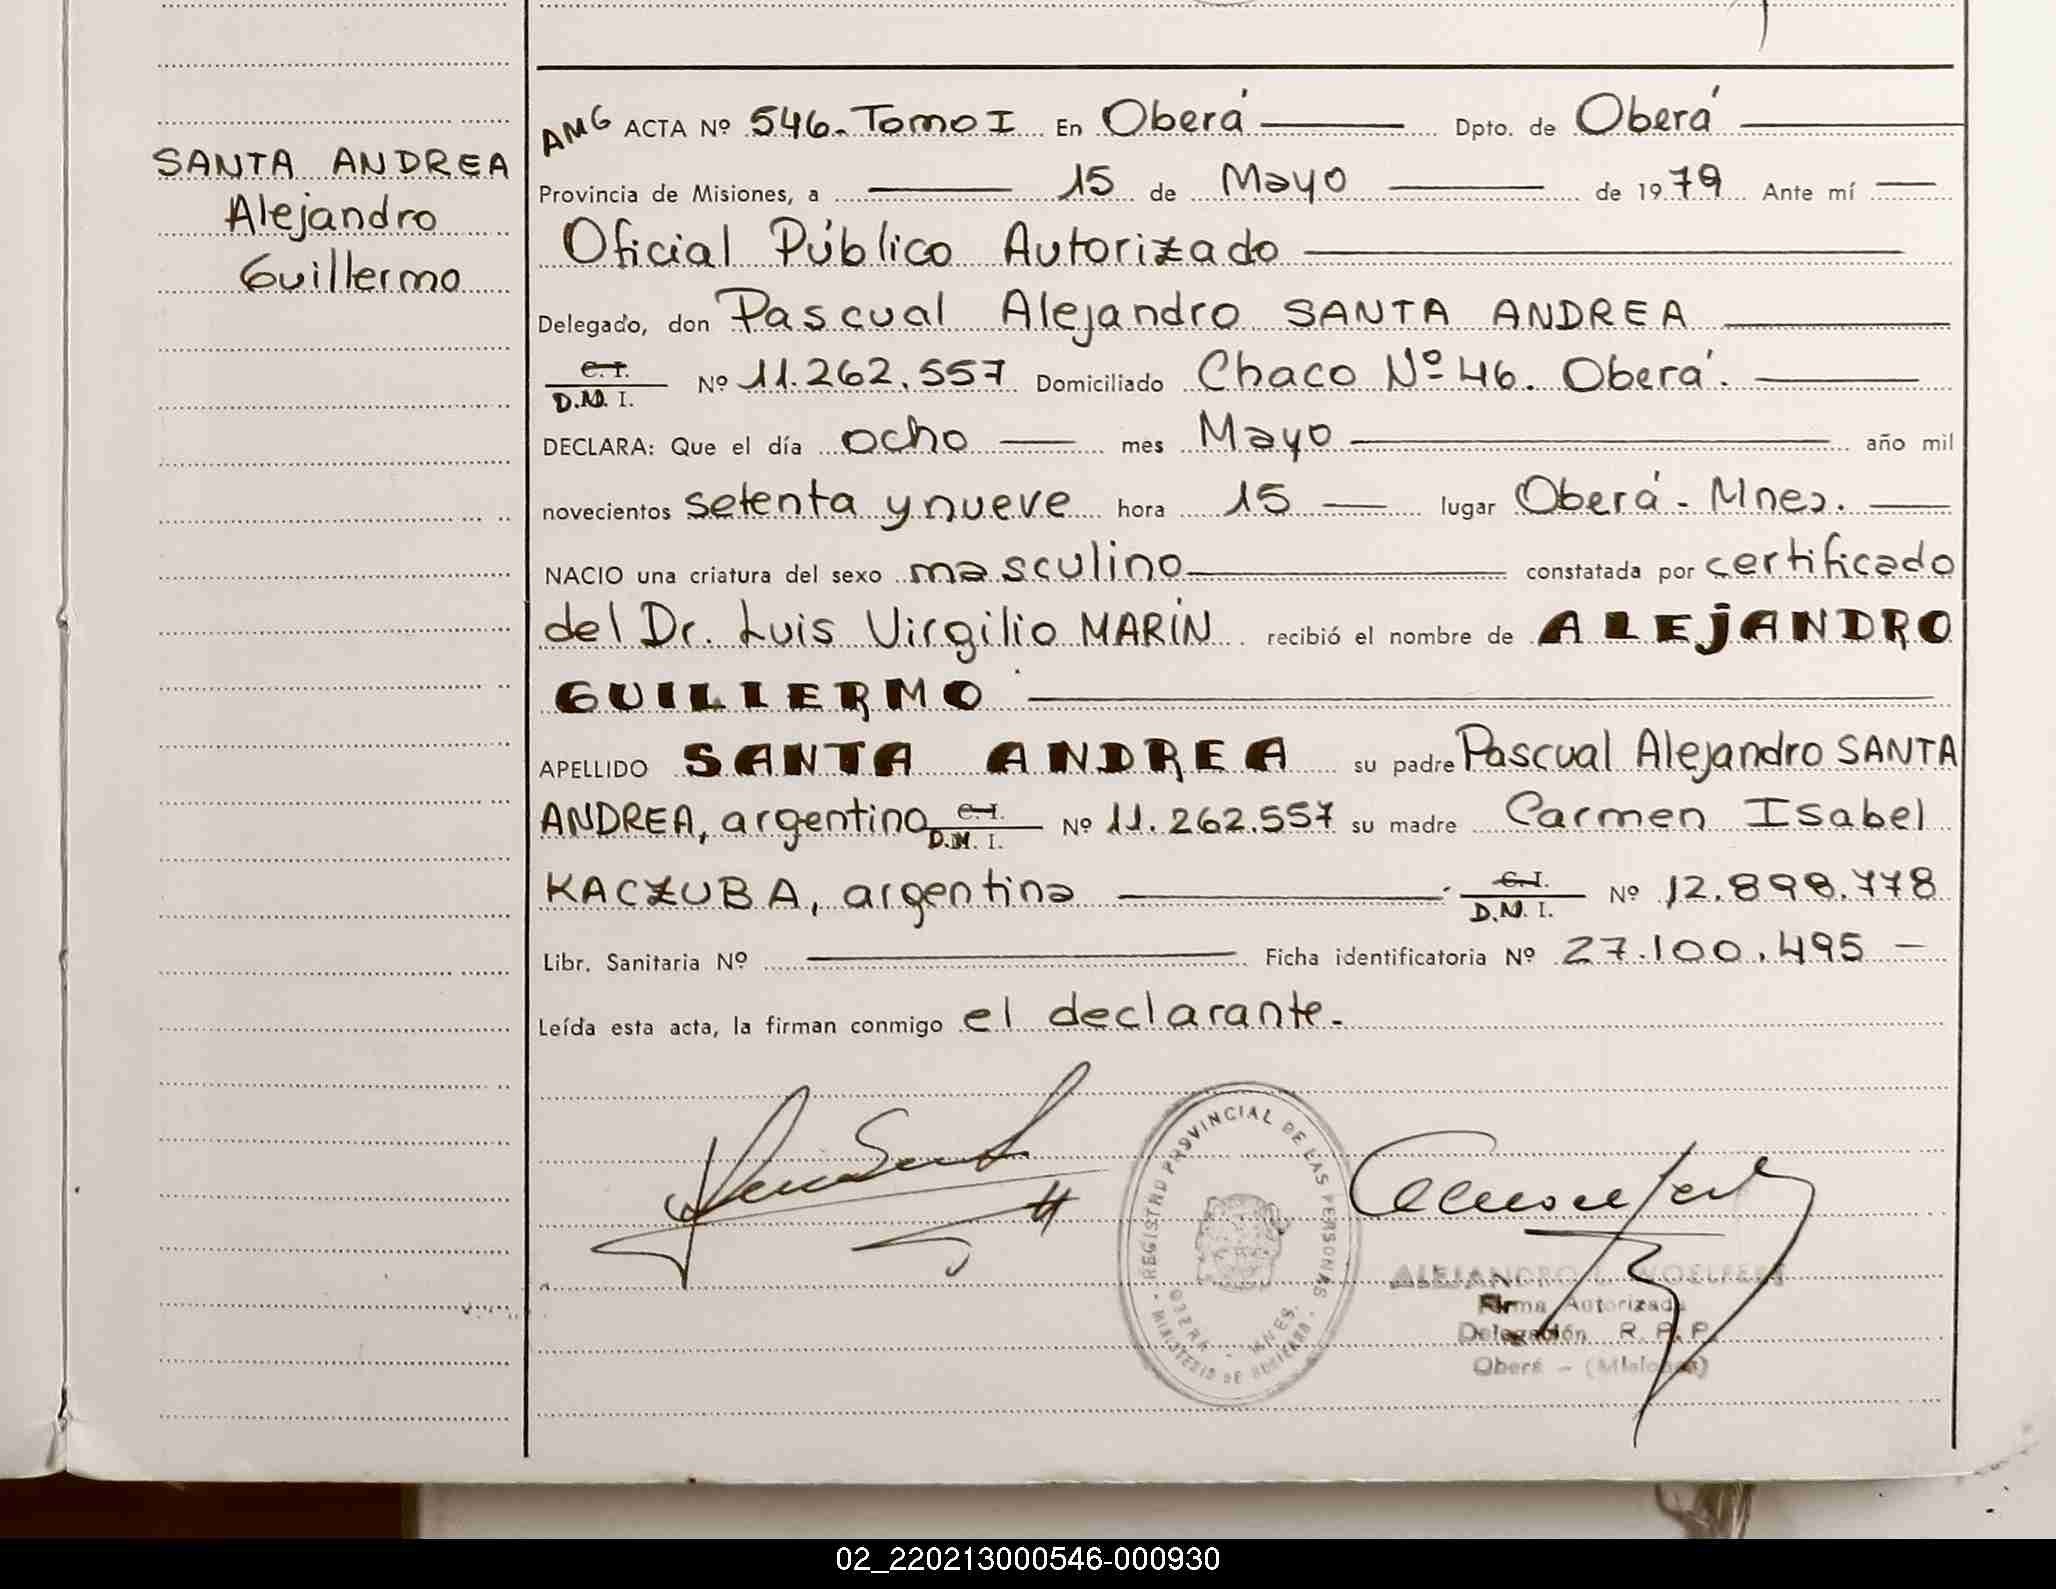 SANTA ANDREA
Alejandro
Guillermo
AMG ACTA Nº 546. Tomo I En Oberá Dpto. de Oberá
Provincia de Misiones, a 15 de Mayo de 1979 Ante mí
Oficial Público Autorizado
Delegado, don Pascual Alejandro SANTA ANDREA
C.I.
D.N.I. Nº 11.262.557 Domiciliado Chaco Nº 46. Oberá.
DECLARA: Que el día ocho mes Mayo año mil
novecientos setenta y nueve hora 15 lugar Oberá - Mnes.
NACIO una criatura del sexo masculino constatada por certificado
del Dr. Luis Virgilio MARÍN recibió el nombre de ALEJANDRO
GUILLERMO
APELLIDO SANTA ANDREA su padre Pascual Alejandro SANTA
ANDREA, argentino C.I.
D.N.I. Nº 11.262.557 su madre Carmen Isabel
KACZUBA, argentina C.I.
D.N.I. Nº 12.898.778
Libr. Sanitaria Nº Ficha identificatoria Nº 27.100.495
Leída esta acta, la firman conmigo el declarante.
REGISTRO PROVINCIAL DE LAS PERSONAS
OBERÁ - MNES.
MINISTERIO DE GOBIERNO
ALEJANDRO
Firma Autorizada
Delegación R. P. P.
Oberá - (Misiones)
02_220213000546-000930